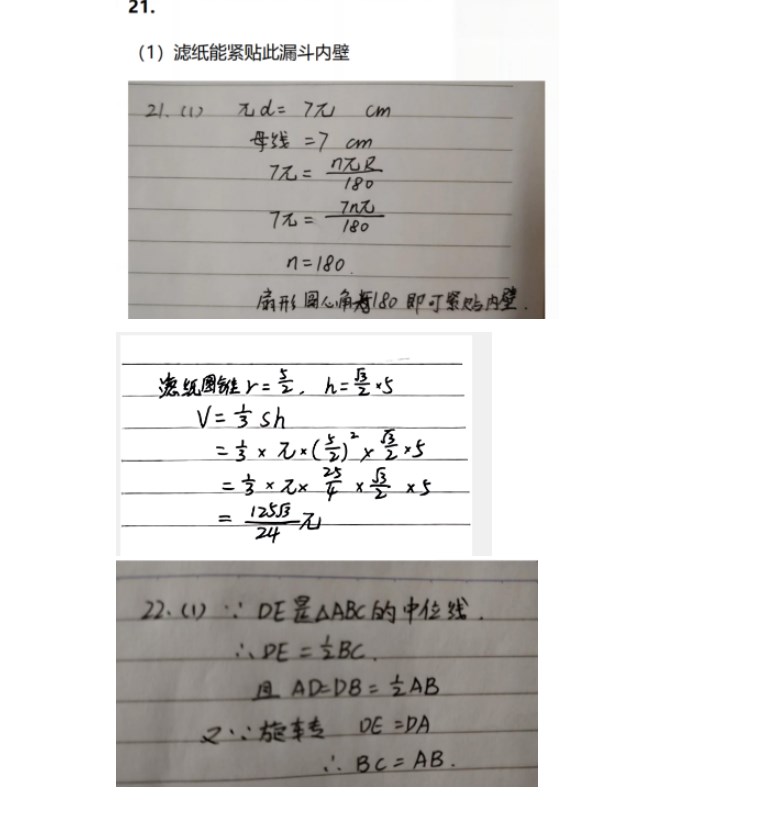 21.
（1）滤纸能紧贴此漏斗内壁
21. (1) πd = 7π cm
母线 = 7 cm
7π = nπR/180
7π = 7nπ/180
n = 180.
扇形圆心角为180即可紧贴内壁.
滤纸圆锥 r = 5/2, h = √3/2 × 5
V = 1/3 Sh
= 1/3 × π × (5/2)² × √3/2 × 5
= 1/3 × π × 25/4 × √3/2 × 5
= 125√3/24 π
22. (1) ∵ DE是△ABC的中位线.
∴ DE = 1/2 BC.
且 AD=DB = 1/2 AB
又∵旋转 DE = DA
∴ BC = AB.